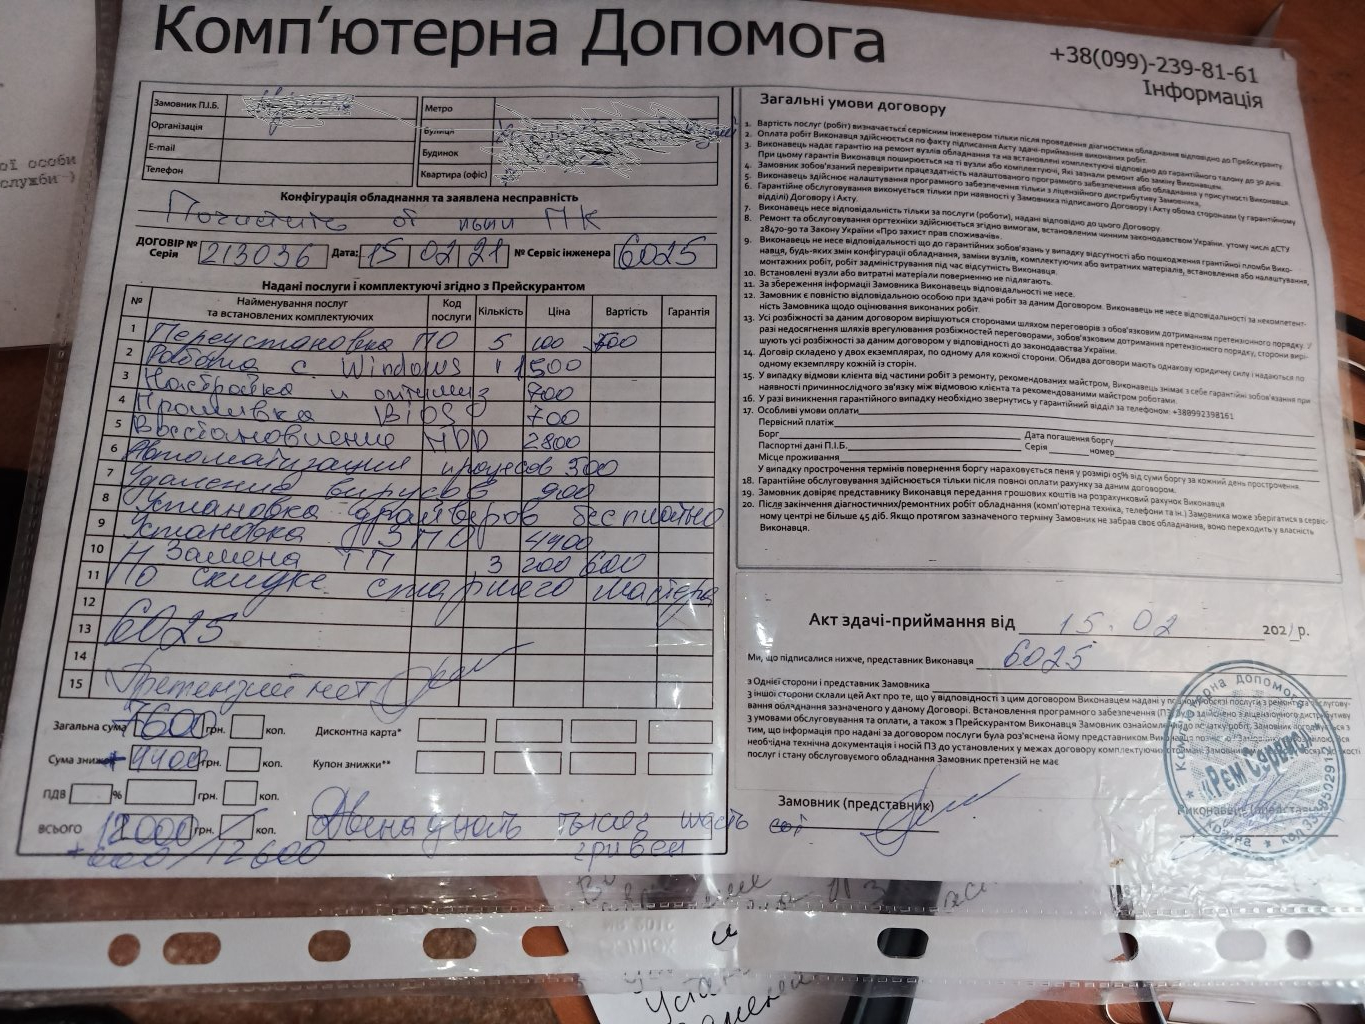 Комп'ютерна Допомога
+38(099)-239-81-61
Інформація
ої особи
служби )
Замовник П.І.Б.
Організація
E-mail
Телефон
Метро
Вулиця
Будинок
Квартира (офіс)
Конфігурація обладнання та заявлена несправність
Почистить от пыли ПК
ДОГОВІР № Серія 213036 Дата: 15 02 21 № Сервіс інженера 6025
Надані послуги і комплектуючі згідно з Прейскурантом
№ Найменування послуг та встановлених комплектуючих Код послуги Кількість Ціна Вартість Гарантія
1 Переустановка ПО 5 100 500
2 Работа с Windows 1 1500
3 Настройка и оптимиз 700
4 Прошивка BIOS 700
5 Восстановление HDD 2800
6 Автоматизация процесов 500
7 Удаление вирусов 900
8 Установка драйверов бесплатно
9 Установка ПО 4400
10 Замена ТП 3 200 600
11 По скидке старшего мастера
12
13 6025
14
15 Претензий нет
Загальна сума 7600 грн. коп. Дисконтна карта*
Сума знижок + 4400 грн. коп. Купон знижки**
ПДВ % грн. коп.
ВСЬОГО 12000 грн. коп. Двенадцать тысяч шесть
+ 600 / 12600 гривен
Загальні умови договору
1. Вартість послуг (робіт) визначається сервісним інженером тільки після проведення діагностики обладнання відповідно до Прейскуранту.
2. Оплата робіт Виконавця здійснюється по факту підписання Акту здачі-приймання виконаних робіт.
3. Виконавець надає гарантію на ремонт вузлів обладнання та на встановлені комплектуючі відповідно до гарантійного талону до 30 днів.
При цьому гарантія Виконавця поширюється на ті вузли або комплектуючі, які зазнали ремонту або заміну Виконавцем.
4. Замовник зобов'язаний перевірити працездатність налаштованого програмного забезпечення або обладнання у присутності Виконавця.
5. Виконавець здійснює налаштування програмного забезпечення тільки з ліцензійного дистрибутиву Замовника,
6. Гарантійне обслуговування виконується тільки при наявності у Замовника підписаного Договору і Акту обома сторонами (у гарантійному
відділі) Договору і Акту.
7. Виконавець несе відповідальність тільки за послуги (роботи), надані відповідно до цього Договору.
8. Ремонт та обслуговування оргтехніки здійснюється згідно вимогам, встановленим чинним законодавством України. утому числі ДСТУ
28470-90 та Закону України «Про захист прав споживачів».
9. Виконавець не несе відповідальності що до гарантійних зобов'язань у випадку відсутності або пошкодження гарантійної пломби Вико-
навця, будь-яких змін конфігурації обладнання, заміни вузлів, комплектуючих або витратних матеріалів, встановлення або налаштування,
монтажних робіт, робіт адміністрування під час відсутності Виконавця.
10. Встановлені вузли або витратні матеріали поверненню не підлягають.
11. За збереження інформації Замовника Виконавець відповідальності не несе.
12. Замовник є повністю відповідальною особою при здачі робіт за даним Договором. Виконавець не несе відповідальності за некомпетент-
ність Замовника щодо оцінювання виконаних робіт.
13. Усі розбіжності за даним договором вирішуються сторонами шляхом переговорів з обов'язковим дотриманням претензійного порядку. У
разі недосягнення шляхів врегулювання розбіжностей переговорами, обов'язковим дотриманням претензійного порядку, сторони вирі-
шують усі розбіжності за даним договором у відповідності до законодавства України.
14. Договір складено у двох екземплярах, по одному для кожної сторони. Обидва договори мають однакову юридичну силу і надаються по
одному екземпляру кожній із сторін.
15. У випадку відмови клієнта від частини робіт з ремонту, рекомендованих майстром, Виконавець знімає з себе гарантійні зобов'язання при
наявності причиннослідчого зв'язку між відмовою клієнта та рекомендованими майстром роботами.
16. У разі виникнення гарантійного випадку необхідно звернутись у гарантійний відділ за телефоном: +380992398161
17. Особливі умови оплати
Первісний платіж
Борг Дата погашення боргу
Паспортні дані П.І.Б. Серія номер
Місце проживання
У випадку прострочення термінів повернення боргу нараховується пеня у розмірі 05% від суми боргу за кожний день прострочення.
18. Гарантійне обслуговування здійснюється тільки після повної оплати рахунку за даним договором.
19. Замовник довіряє представнику Виконавця передання грошових коштів на розрахунковий рахунок Виконавця
20. Після закінчення діагностичних/ремонтних робіт обладнання (комп'ютерна техніка, телефони та ін.) Замовника може зберігатися в сервіс-
ному центрі не більше 45 діб. Якщо протягом зазначеного терміну Замовник не забрав своє обладнання, воно переходить у власність
Виконавця.
Акт здачі-приймання від 15.02 2021 р.
Ми, що підписалися нижче, представник Виконавця 6025
з Однієї сторони і представник Замовника
З іншої сторони склали цей Акт про те, що у відповідності з цим договором Виконавцем надані у повному обсязі послуги з ремонту та обслугову-
вання обладнання зазначеного у даному Договорі. Встановлення програмного забезпечення (ПЗ) здійснено з ліцензійного дистрибутиву
З умовами обслуговування та оплати, а також з Прейскурантом Виконавця Замовник ознайомлений до початку робіт.
тим, що інформація про надані за договором послуги була роз'яснена йому представником Виконавця
необхідна технічна документація і носій ПЗ до установлених у межах договору комплектуючих
послуг і стану обслуговуємого обладнання Замовник претензій не має
Замовник (представник)
Виконавець (представник)
Комп'ютерна допомога
«Рем Сервис»